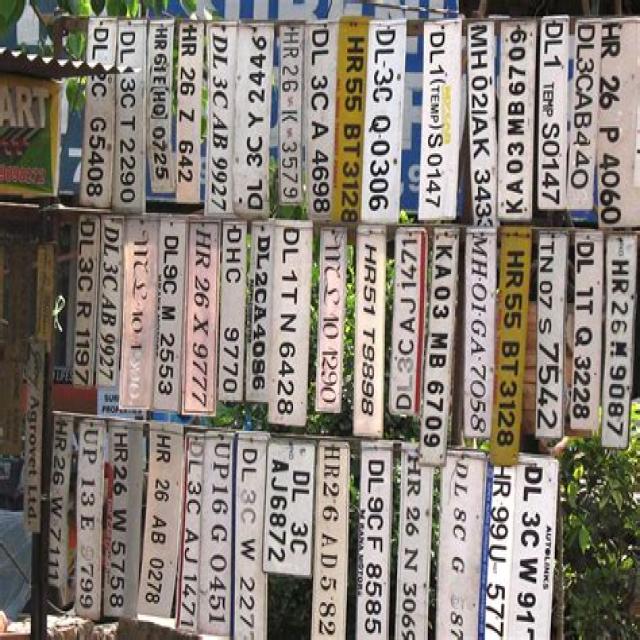 ART
DL 2C G5408
DL 3C T 2290
HR 26 Z 642
DL 3C AB 9927
DL 3C Y 2446
HR 26 K 3579
DL 3C A 4698
HR 55 BT 3128
DL-3C Q 0306
DL 1 (TEMP) S 0147
MH 02 JAK 343
KA03 MB 6709
DL 1 TEMP S0147
DL3CAB440
HR 26 P 4060
DL 3C R 1197
DL 3C AB 9927
DL9C M 2553
HR 26 X 9777
DHC 9770
DL-2CA4086
DL 1T N 6428
10 1290
HR51 T9898
DL3C AJ 1471
KA03 MB 6709
MH-01-GA-7058
HR 55 BT3128
TN 07 S 7542
DL 1T Q 3228
HR-26 M 9087
Agrovet Ltd
HR 26 W 7111
UP 13 E 9799
HR26 W 5758
HR 26 AB 0278
D 3C AJ 1471
UP16 G 0451
DL 3C W 227
DL 3C
AJ6872
HR26 AD 582
DL 9CF 8585
HR 26 N 3069
DL 8C G
HR 99U 577
DL 3C W 91
AUTOLINKS